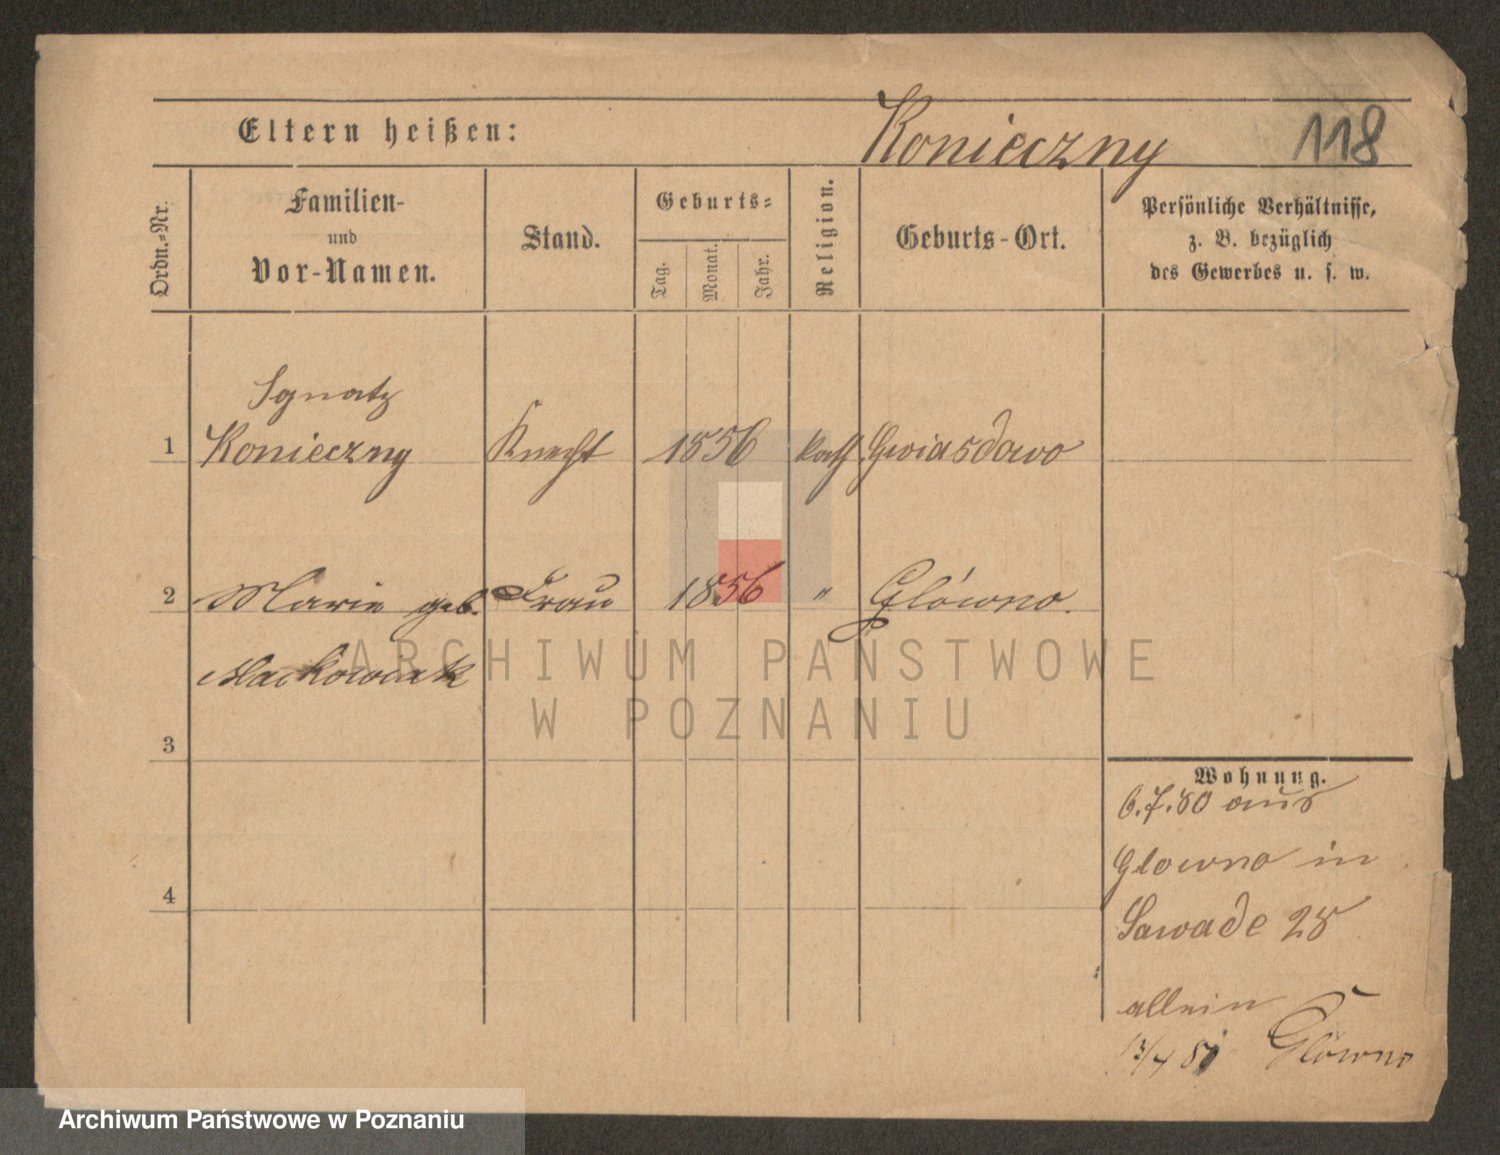 Eltern heißen: Konieczny 118
Ordn.-Nr.
Familien-
und
Vor-Namen.
Stand.
Geburts-
Tag.
Monat.
Jahr.
Religion.
Geburts-Ort.
Persönliche Verhältnisse,
z. B. bezüglich
des Gewerbes u. s. w.
Ignatz
1 Konieczny Knecht 1856 kath Gwiasdowo
2 Marie geb. Frau 1856 " Główno.
Mackowiak
ARCHIWUM PAŃSTWOWE
W POZNANIU
3
Wohnung.
6.7.80 aus
Glowno in
4
Sawade 28
allein
13/4 81 Główno
Archiwum Państwowe w Poznaniu